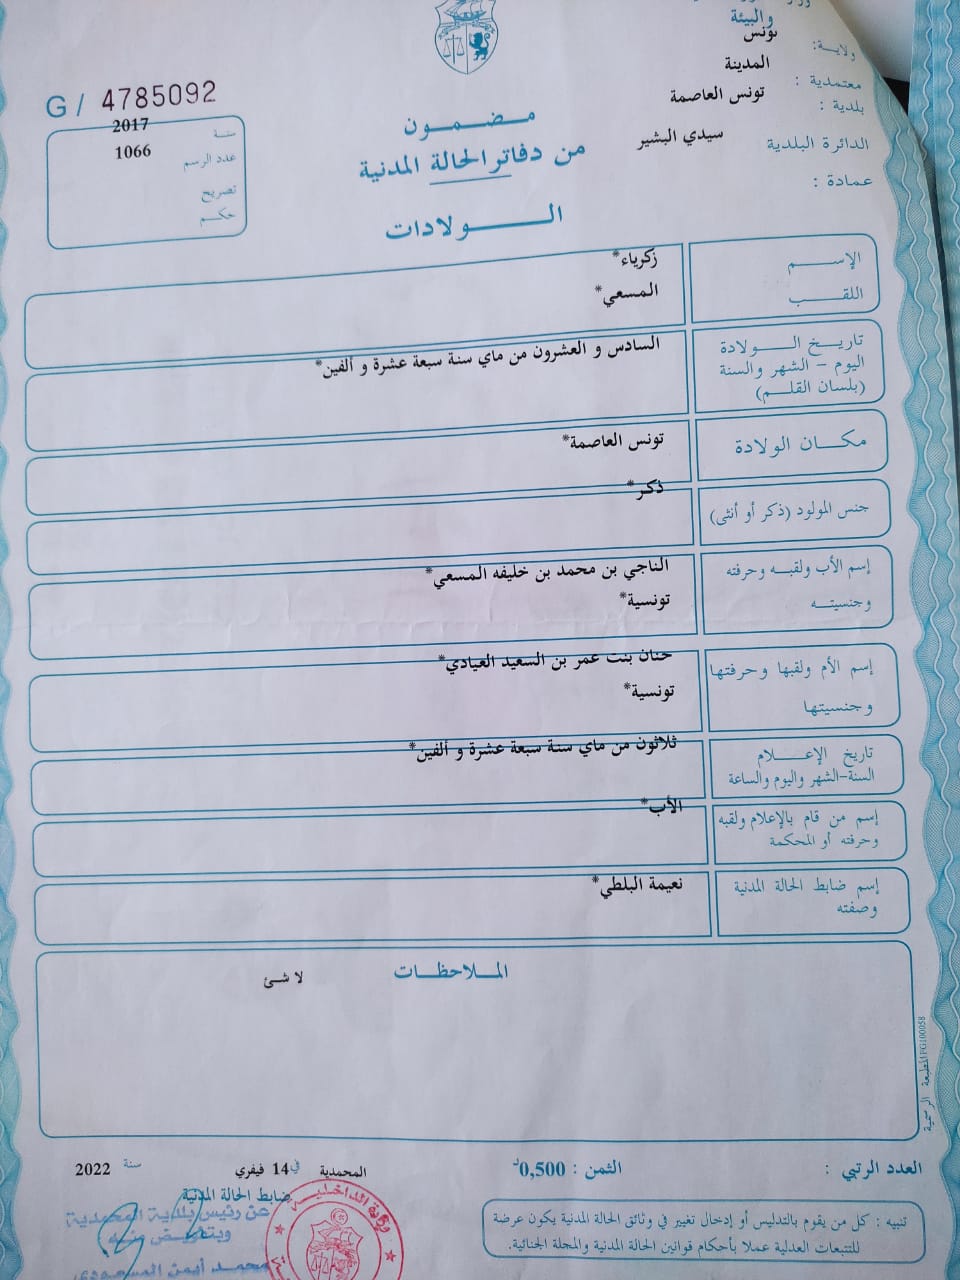 والبيئة
ولاية: تونس
معتمدية : المدينة
بلدية : تونس العاصمة
الدائرة البلدية سيدي البشير
عمادة :
G / 4785092
سنة 2017
عدد الرسم 1066
تصريح
حكم
مضمون
من دفاتر الحالة المدنية
الولادات
الإسم زكرياء*
اللقب المسعي*
تاريخ الولادة
اليوم - الشهر والسنة
(بلسان القلم)
السادس و العشرون من ماي سنة سبعة عشرة و ألفين*
مكان الولادة تونس العاصمة*
جنس المولود (ذكر أو أنثى) ذكر*
إسم الأب ولقبه وحرفته
وجنسيته
الناجي بن محمد بن خليفه المسعي*
تونسية*
إسم الأم ولقبها وحرفتها
وجنسيتها
حنان بنت عمر بن السعيد العيادي*
تونسية*
تاريخ الإعلام
السنة-الشهر واليوم والساعة
ثلاثون من ماي سنة سبعة عشرة و ألفين*
إسم من قام بالإعلام ولقبه
وحرفته أو المحكمة
الأب*
إسم ضابط الحالة المدنية
وصفته
نعيمة البلطي*
الملاحظات
لا شئ
المطبعة الرسمية FG100058
العدد الرتبي :
الثمن : 0,500د
المحمدية في 14 فيفري سنة 2022
ضابط الحالة المدنية
عن رئيس بلدية المحمدية
وبتفويض منه
محمد أيمن المسعودي
وزارة الداخلية
تنبيه : كل من يقوم بالتدليس أو إدخال تغيير في وثائق الحالة المدنية يكون عرضة
للتتبعات العدلية عملا بأحكام قوانين الحالة المدنية والمجلة الجنائية.